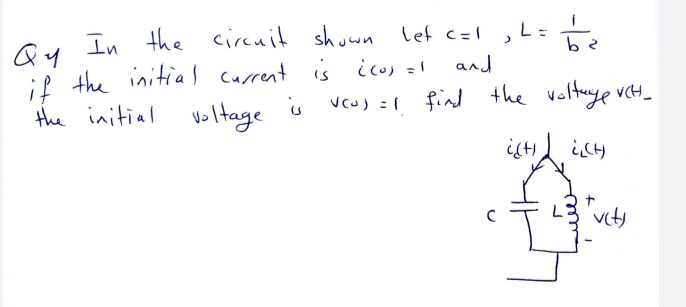 Q4 In the circuit shown let c=1 , L = 1/b²
if the initial current is i(0) = 1 and
the initial voltage is v(0) = 1 find the voltage v(t)_
ic(t) iL(t)
C L + v(t) -